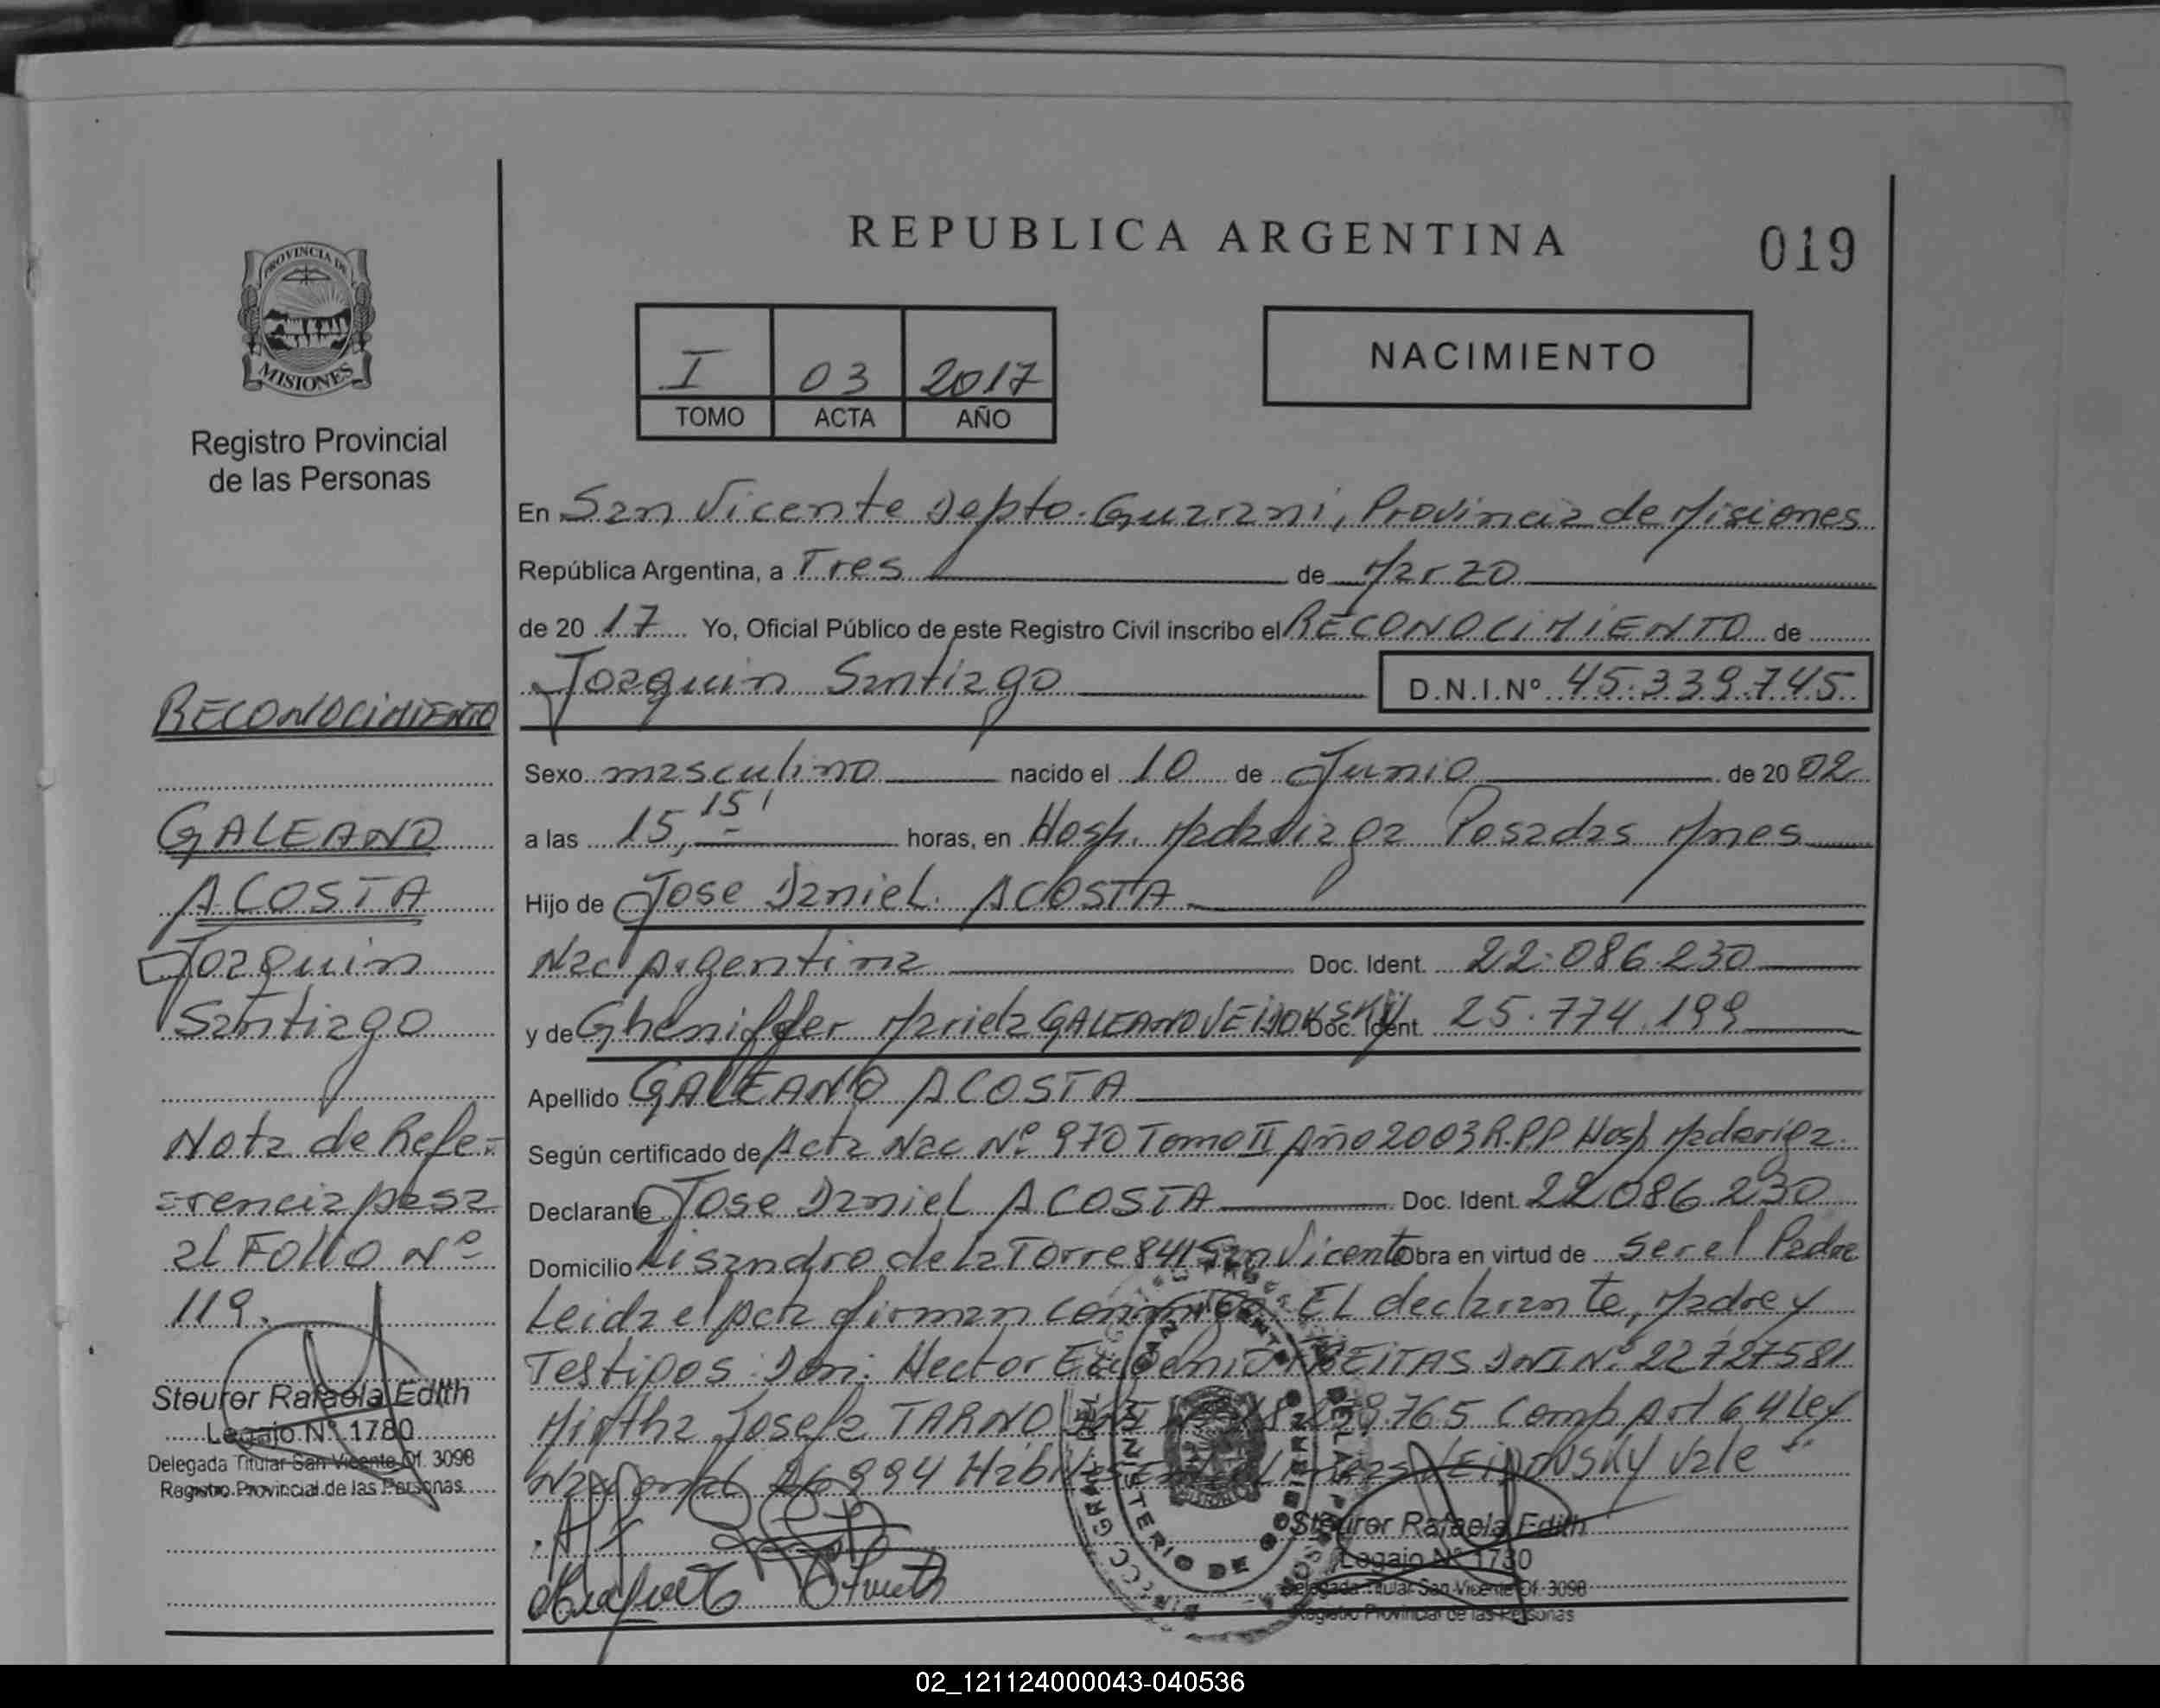 REPUBLICA ARGENTINA
019
PROVINCIA DE
MISIONES
Registro Provincial
de las Personas
I 03 2017
TOMO ACTA AÑO
NACIMIENTO
En San Vicente Depto. Guarani, Provincia de Misiones
República Argentina, a Tres de Marzo
de 2017 Yo, Oficial Público de este Registro Civil inscribo el RECONOCIMIENTO de
Joaquin Santiago D.N.I.Nº 45.339.745
Sexo masculino nacido el 10 de Junio de 2002
a las 15,15' horas, en Hosp. Madariaga Posadas Mnes
Hijo de Jose Daniel ACOSTA
Nac Argentina Doc. Ident. 22.086.230
y de Gheniffer Mariela GALEANO VEIJOVSKY Doc. Ident. 25.774.199
Apellido GALEANO ACOSTA
Según certificado de Acta Nac Nº 970 Tomo II Año 2003 R.P.P. Hosp Madariga.
Declarante Jose Daniel ACOSTA Doc. Ident. 22086230
Domicilio Lisandro de la Torre 841 San Vicente Obra en virtud de ser el Padre
Leida el Acta firman conmigo. EL declarante, Madre y
Testigos: Don: Hector Eugenio FREITAS DNI Nº 22727581
Mirtha Josefa TARNO 765 Comp Art 64 Ley
Nacional 26994 Vale
RECONOCIMIENTO
GALEANO
ACOSTA
Joaquin
Santiago
Nota de Refe-
rencia pasa
al FOLIO Nº
119.
Steurer Rafaela Edith
Legajo Nº 1780
Delegada Titular San Vicente Of. 3098
Registro Provincial de las Personas
MINISTERIO DE GOBIERNO
Steurer Rafaela Edith
Legajo Nº 1780
Delegada Titular San Vicente Of. 3098
Registro Provincial de las Personas
02_121124000043-040536